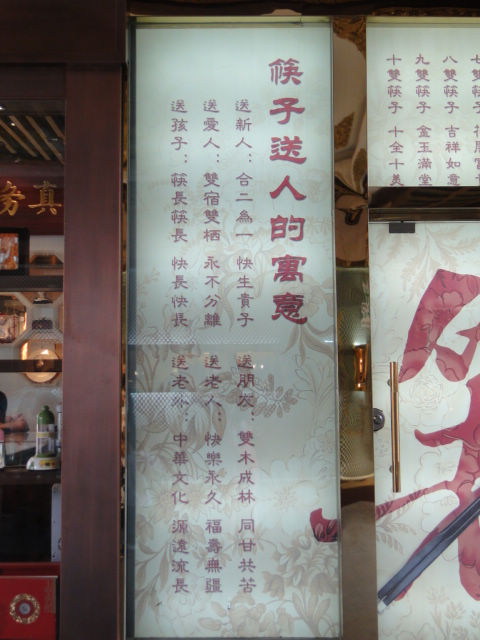 七雙筷子
八雙筷子 吉祥如意
九雙筷子 金玉滿堂
十雙筷子 十全十美
筷子送人的寓意
送新人：合二為一 快生貴子 送朋友：雙木成林 同甘共苦
送愛人：雙宿雙栖 永不分離 送老人：快樂永久 福壽無疆
送孩子：筷長筷長 快長快長 送老外：中華文化 源遠流長
真